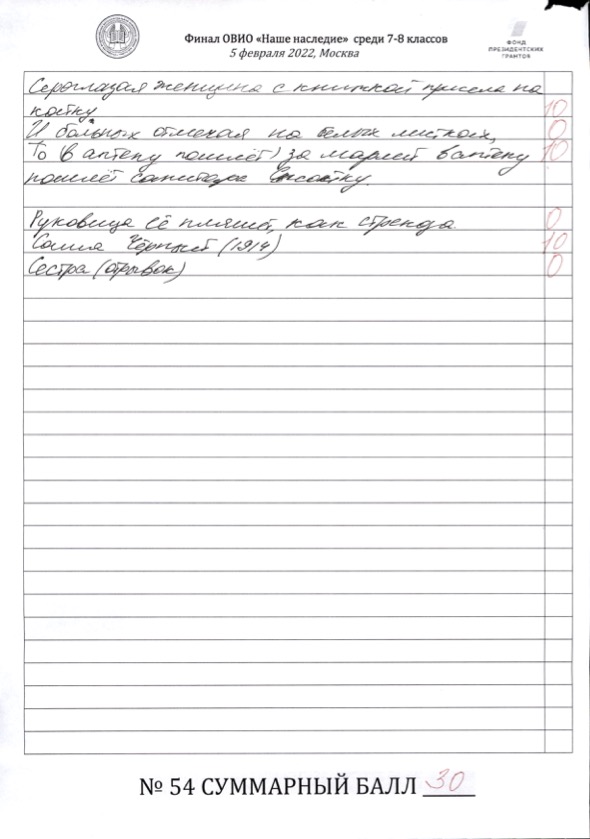 Финал ОВИО «Наше наследие» среди 7-8 классов
5 февраля 2022, Москва
ФОНД
ПРЕЗИДЕНТСКИХ
ГРАНТОВ
Сероглазая женщина с книжкой присела на
койку 10
И больных отмечая на белых листках, 0
То (в аптеку пошлёт) за марлей в аптеку 10
пошлёт санитара
Руковица её пляшет, как стренда 0
Саша Чёрный (1914) 10
Сестра (отрывок) 0
№ 54 СУММАРНЫЙ БАЛЛ 30